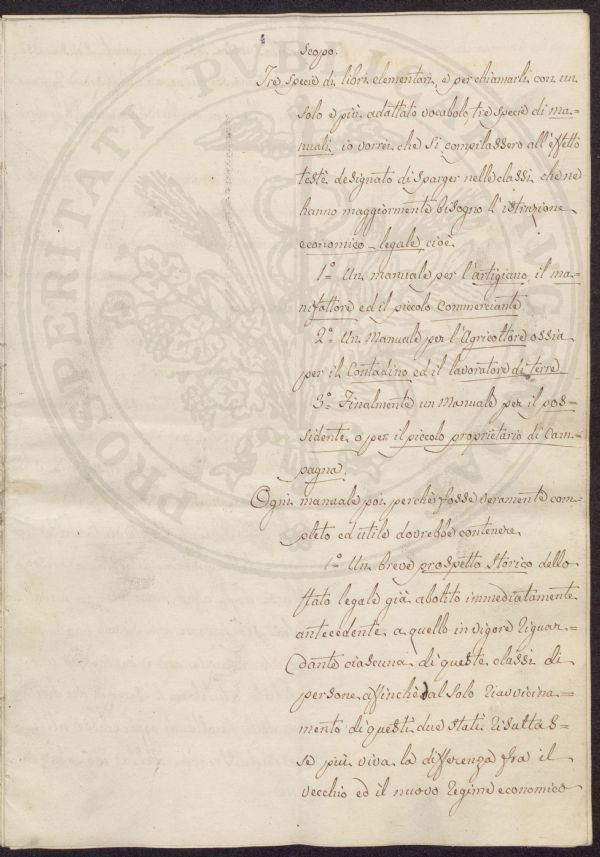 scopo.
Tre specie di libri elementari, e per chiamarli con un
solo e più adattato vocabolo, tre specie di ma=
nuali io vorrei che si compilassero all'effetto
testè designato di sparger nelle classi che ne
hanno maggiormente bisogno l'istruzione
economico-legale, cioè.
1º Un manuale per l'artigiano, il ma=
nifattore ed il piccolo Commerciante
2º Un Manuale per l'Agricoltore ossia
per il Contadino ed il lavoratore di terre
3º Finalmente un Manuale per il pos=
sidente, o per il piccolo proprietario di Cam=
pagna.
Ogni manuale poi perchè fosse veramente com=
pleto ed utile dovrebbe contenere.
1º Un breve prospetto storico dello
stato legale già abolito immediatamente
antecedente a quello in vigore riguar=
dante ciascuna di queste classi di
persone affinchè dal solo riavvicina=
mento di questi due stati risultas=
se più viva la differenza fra il
vecchio ed il nuovo regime economico
PROSPERITATI PUBLICAE